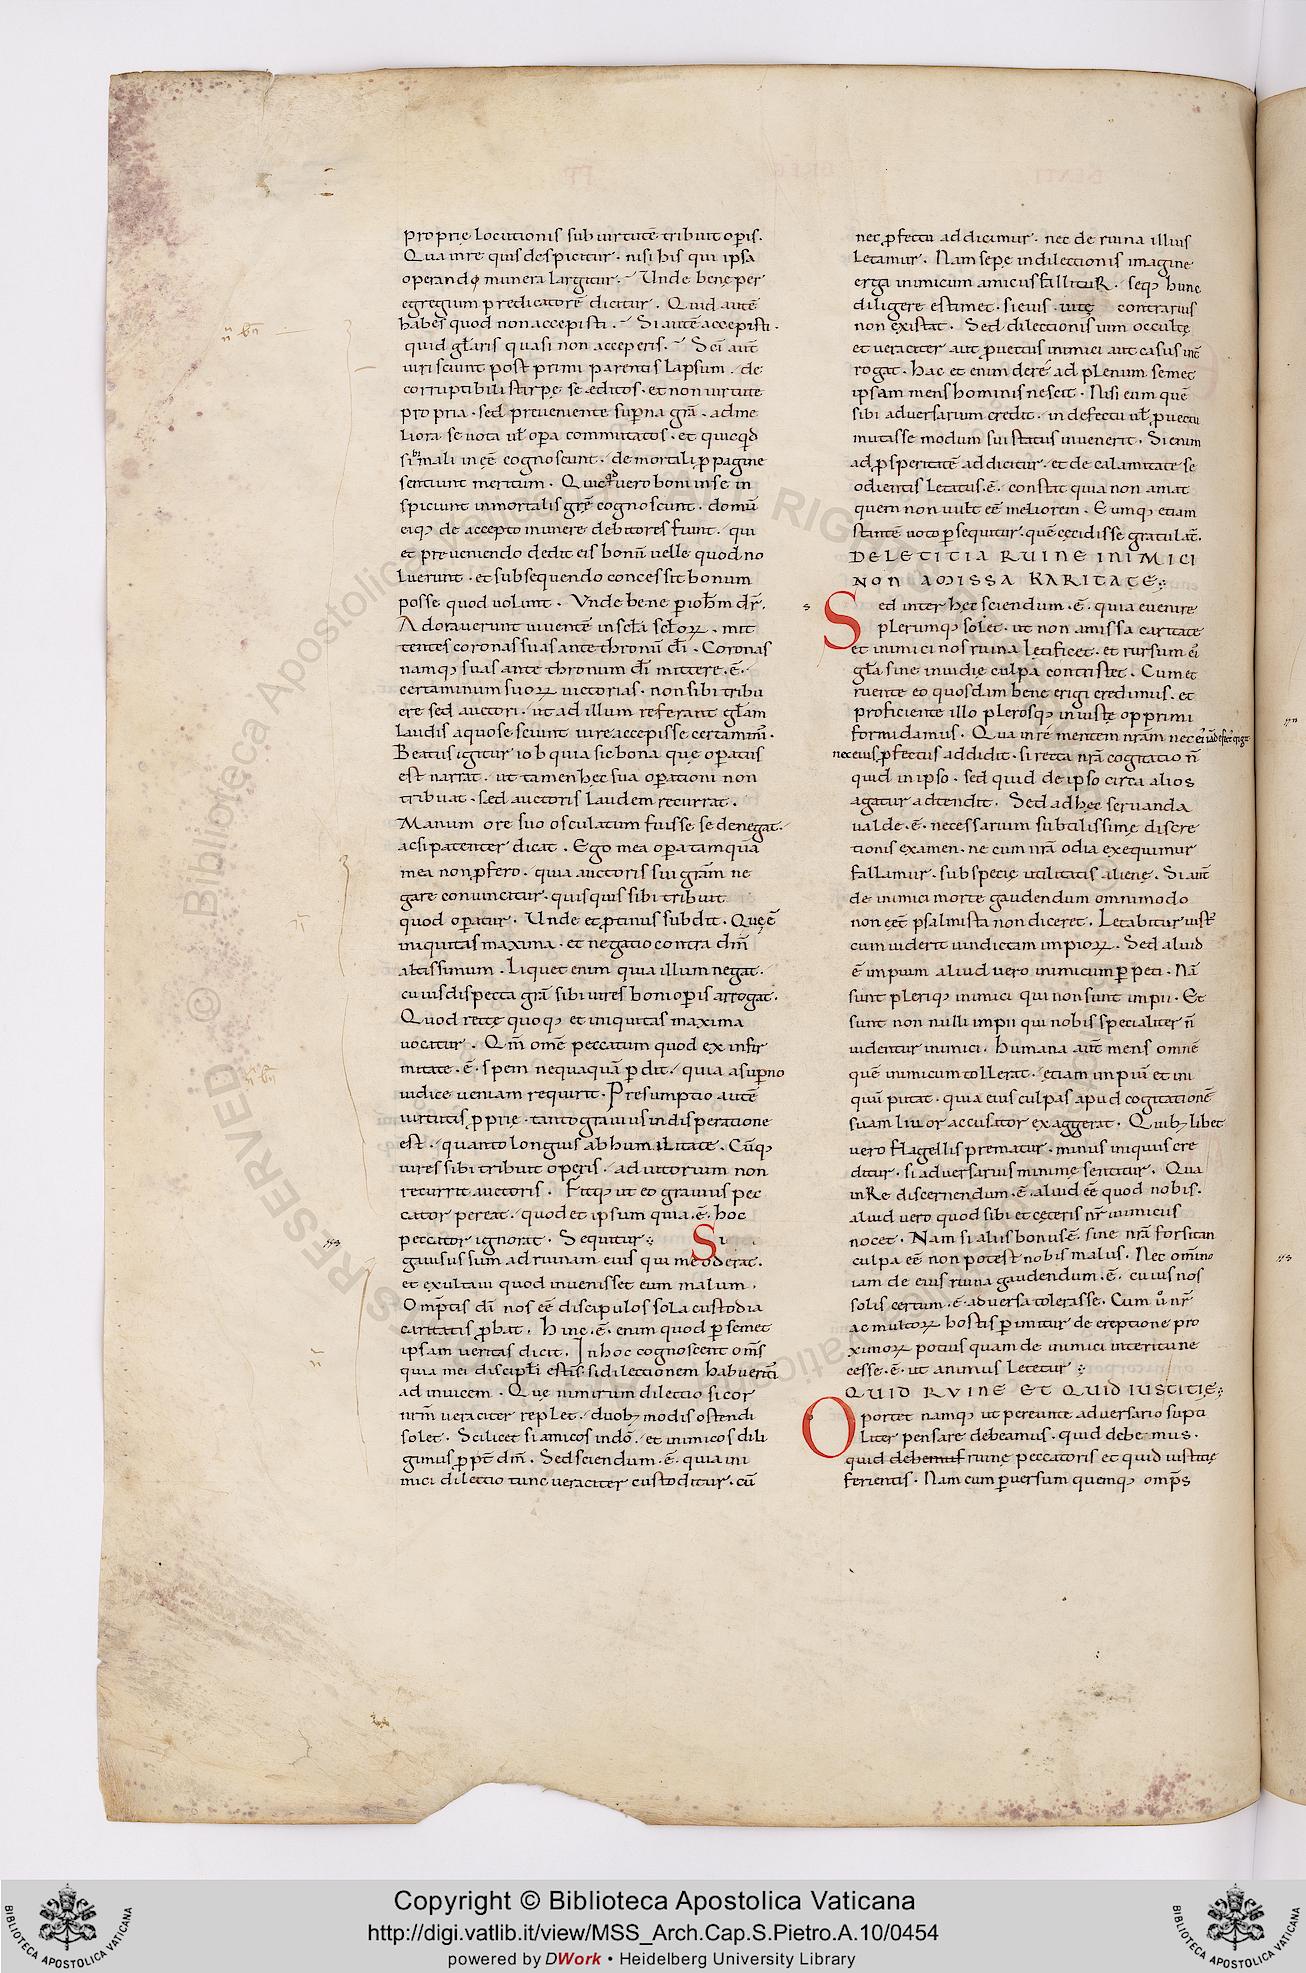 proprię locutionis sub uirtutē tribuit op̄is.
Qua in re quis despicitur. nisi his qui ipsa
operandę munera largitur. Unde bene per
egregium predicatorē dicitur. Quid autē
habes quod non accepisti. Si autē accepisti.
quid gl̄aris quasi non acceperis. Sci aut̄
uiri sciunt post primi parentis lapsum. de
corruptibili stirpe se editos. et non uirtute
propria. sed preueniente sup̄na gr̄a. ad me
liora se uota ul̄ op̄a commutatos. et quicq̄d
sibi mali inęē cognoscunt. de mortali p̄pagine
sentiunt meritum. Quicq̄d uero boni in se in
spiciunt inmortalis grē cognoscunt. domū
eiq; de accepto munere debitores fiunt. qui
et preueniendo dedit eis bonū uelle quod no
luerunt. et subsequendo concessit bonum
posse quod uolunt. Unde bene p̄ ioh̄m dr̄.
Adorauerunt uiuentē in sc̄la sc̄loꝝ. mit
tentes coronas suas ante thronū dn̄i. Coronas
namq; suas ante thronum dn̄i mittere. ē.
certaminum suoꝝ uictorias. non sibi tribu
ere sed auctori. ut ad illum referant gl̄am
laudis a quo se sciunt uires accepisse certamini.
Beatus igitur iob quia sic bona que op̄atus
est narrat. ut tamen hęc sua op̄ationi non
tribuat. sed auctoris laudem recurrat.
Manum ore suo osculatum fuisse se denegat.
acsi patenter dicat. Ego mea op̄a tamquā
mea non p̄fero. quia auctoris sui grām ne
gare conuincitur. quisquis sibi tribuit
quod op̄atur. Unde et p̄tinus subdit. Quęē
iniquitas maxima. et negatio contra dm̄
altissimum. Liquet enim quia illum negat.
cuius dispecta gr̄a sibi uires boni op̄is arrogat.
Quod rectę quoq; et iniquitas maxima
uocatur. Qm̄ omē peccatum quod ex infir
mitate. ē. spem nequaquā p̄dit. quia a sup̄no
iudice ueniam requirit. Presumptio autē
uirtutis p̄prię. tanto grauius in disperatione
est. quanto longius ab humilitate. Cūq;
uires sibi tribuit operis. ad iutorium non
recurrit auctoris. Fitq; ut eo grauius pec
cator pereat. quod et ipsum quia. ē. hoc
peccator ignorat. Sequitur. Si
gauisus sum ad ruinam eius qui me oderat.
et exultaui quod inuenisset eum malum.
Omp̄tis dī nos eē discipulos sola custodia
caritatis p̄bat. Hinc. ē. enim quod p̄ semet
ipsam ueritas dicit. In hoc cognoscent om̄s
quia mei discipl̄i estis. si dilectionem habuerit̄
ad inuicem. Quę nimirum dilectio si cor
nr̄m ueraciter replet. duob; modis ostendi
solet. Scilicet si amicos in dō. et inimicos dili
gimus p̄pt̄ dm̄. Sed sciendum. ē. quia ini
mici dilectio tunc ueraciter custoditur. cū
nec p̄fectu addicimur. nec de ruina illius
letamur. Nam sepe in dilectionis imagine
erga inimicum amicus fallituR. seq; hunc
diligere estimet. si eius uitę contrarius
non existat. Sed dilectionis uim occultę
et ueraciter aut p̄uectus inimici aut casus int̄
rogat. Hac et enim de re ad plenum semet
ipsam mens hominis nescit. Nisi eum quē
sibi aduersarium credit. in defectu ul̄ p̄uectu
mutasse modum sui status inuenerit. Si enim
ad p̄speritatē addicitur. et de calamitate se
odientis letatus. ē. constat quia non amat
quem non uult eē meliorem. Eumq; etiam
stantē uoto p̄sequitur. quē cecidisse gratulat̄.
DE LETITIA RUINE INIMICI
NON AMISSA KARITATE
Sed inter hęc sciendum. ē. quia euenire
plerumq; solet. ut non amissa caritate
et inimici nos ruina lętificet. et rursum ei
gl̄a sine inuidię culpa contristet. Cum et
ruente eo quosdam bene erigi credimus. et
proficiente illo plerosq; iniuste opprimi
formidamus. Qua in re mentem nr̄am nec ei iā defect; erigit
nec eius p̄fectus addidit. si recta nr̄a cogitatio ñ
quid in ipso. sed quid de ipso circa alios
agatur adtendit. Sed ad hęc seruanda
ualde. ē. necessarium subtilissimę discre
tionis examen. ne cum nr̄a odia exequimur
fallamur. sub specię utilitatis alienę. Si aut̄
de inimici morte gaudendum omnimodo
non eēt psalmista non diceret. Letabitur iust;
cum uiderit uindictam impioꝝ. Sed aliud
ē impium aliud uero inimicum p̄peti. Nā
sunt pleriq; inimici qui non sunt impii. Et
sunt non nulli impii qui nobis specialiter ñ
uidentur inimici. Humana aut̄ mens omnē
quē inimicum tollerat. etiam impiū et ini
quū putat. quia eius culpas apud cogitationē
suam liuor accusator exaggerat. Quib; libet
uero flagellis prematur. minus iniquus cre
ditur. si aduersarius minimę sentitur. Qua
in Re discernendum. ē. aliud eē quod nobis.
aliud uero quod sibi et cęteris nr̄ inimicus
nocet. Nam si aliis bonus ē. sine nr̄a forsitan
culpa eē non potest nobis malus. Nec om̄ino
iam de eius ruina gaudendum. ē. cuius nos
solis certum. ē. aduersa tolerasse. Cum ů nr̄
ac multoꝝ hostis p̄imitur de ereptione pro
ximoꝝ potius quam de inimici interitu ne
cesse. ē. ut animus letetur
QUID RVINE ET QUID IUSTITIĘ
Oportet namq; ut pereunte aduersario supti
liter pensare debeamus. quid debemus.
quid debemus ruinę peccatoris et quid iustitię
ferientis. Nam cum p̄uersum quemq; omp̄s
Copyright © Biblioteca Apostolica Vaticana
http://digi.vatlib.it/view/MSS_Arch.Cap.S.Pietro.A.10/0454
powered by DWork • Heidelberg University Library